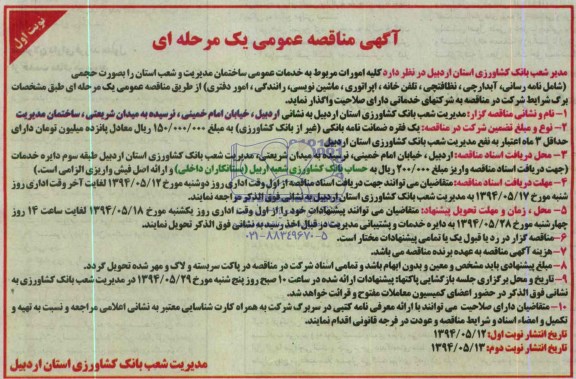 نوبت اول
آگهی مناقصه عمومی یک مرحله ای
مدیر شعب بانک کشاورزی استان اردبیل در نظر دارد کلیه امورات مربوط به خدمات عمومی ساختمان مدیریت و شعب استان را بصورت حجمی
(شامل نامه رسانی، آبدارچی، نظافتچی، تلفن خانه، اپراتوری، ماشین نویسی، رانندگی، امور دفتری) از طریق مناقصه عمومی یک مرحله ای طبق مشخصات
برگ شرایط شرکت در مناقصه به شرکتهای خدماتی دارای صلاحیت واگذار نماید.
۱- نام و نشانی مناقصه گزار: مدیریت شعب بانک کشاورزی استان اردبیل به نشانی اردبیل، خیابان امام خمینی، نرسیده به میدان شریعتی، ساختمان مدیریت
۲- نوع و مبلغ تضمین شرکت در مناقصه: یک فقره ضمانت نامه بانکی (غیر از بانک کشاورزی) به مبلغ ۱۵۰/۰۰۰/۰۰۰ ریال معادل پانزده میلیون تومان دارای
حداقل ۳ ماه اعتبار به نفع مدیریت شعب بانک کشاورزی استان اردبیل
۳- محل دریافت اسناد مناقصه: اردبیل، خیابان امام خمینی، نرسیده به میدان شریعتی، مدیریت شعب بانک کشاورزی استان اردبیل طبقه سوم دایره خدمات
(جهت دریافت اسناد مناقصه واریز مبلغ ۲۰۰/۰۰۰ ریال به حساب بانک کشاورزی شعبه اربیل (بستانکاران داخلی) و ارائه اصل فیش واریزی الزامی است.)
۴- مهلت دریافت اسناد مناقصه: متقاضیان می توانند جهت دریافت اسناد مناقصه از اول وقت اداری روز دوشنبه مورخ ۱۳۹۴/۰۵/۱۲ لغایت آخر وقت اداری روز
شنبه مورخ ۱۳۹۴/۰۵/۱۷ به مدیریت شعب بانک کشاورزی استان اردبیل به نشانی فوق الذکر مراجعه نمایند.
۵- محل، زمان و مهلت تحویل پیشنهاد: متقاضیان می توانند پیشنهادات خود را از اول وقت اداری روز یکشنبه مورخ ۱۳۹۴/۰۵/۱۸ لغایت ساعت ۱۴ روز
چهارشنبه مورخ ۱۳۹۴/۰۵/۲۸ به دایره خدمات و پشتیبانی مدیریت در قبال اخذ رسید به نشانی فوق الذکر تحویل نمایند.
۶- مناقصه گزار در رد یا قبول یک یا تمامی پیشنهادات مختار است.
۰۲۱-۸۸۳۴۹۶۷۰-۵
۷- هزینه آگهی مناقصه به عهده برنده مناقصه می باشد.
۸- مبلغ پیشنهادی باید مشخص و معین و بدون ابهام باشد و تمامی اسناد شرکت در مناقصه در پاکت سربسته و لاک و مهر شده تحویل گردد.
۹- تاریخ و محل برگزاری جلسه بازگشایی پاکتها: پیشنهادات ارائه شده در ساعت ۱۰ صبح روز پنج شنبه مورخ ۱۳۹۴/۰۵/۲۹ در مدیریت شعب بانک کشاورزی به
نشانی فوق الذکر در حضور اعضای کمیسیون معاملات مفتوح و قرائت خواهد شد.
۱۰- متقاضیان دارای صلاحیت می توانند با ارائه معرفی نامه کتبی در سربرگ شرکت به همراه کارت شناسایی معتبر به نشانی اعلامی مراجعه و نسبت به تهیه و
تکمیل و امضاء اسناد و شرایط مناقصه و عودت در فرجه قانونی اقدام نمایند.
تاریخ انتشار نوبت اول: ۱۳۹۴/۰۵/۱۲
تاریخ انتشار نوبت دوم: ۱۳۹۴/۰۵/۱۳
مدیریت شعب بانک کشاورزی استان اردبیل